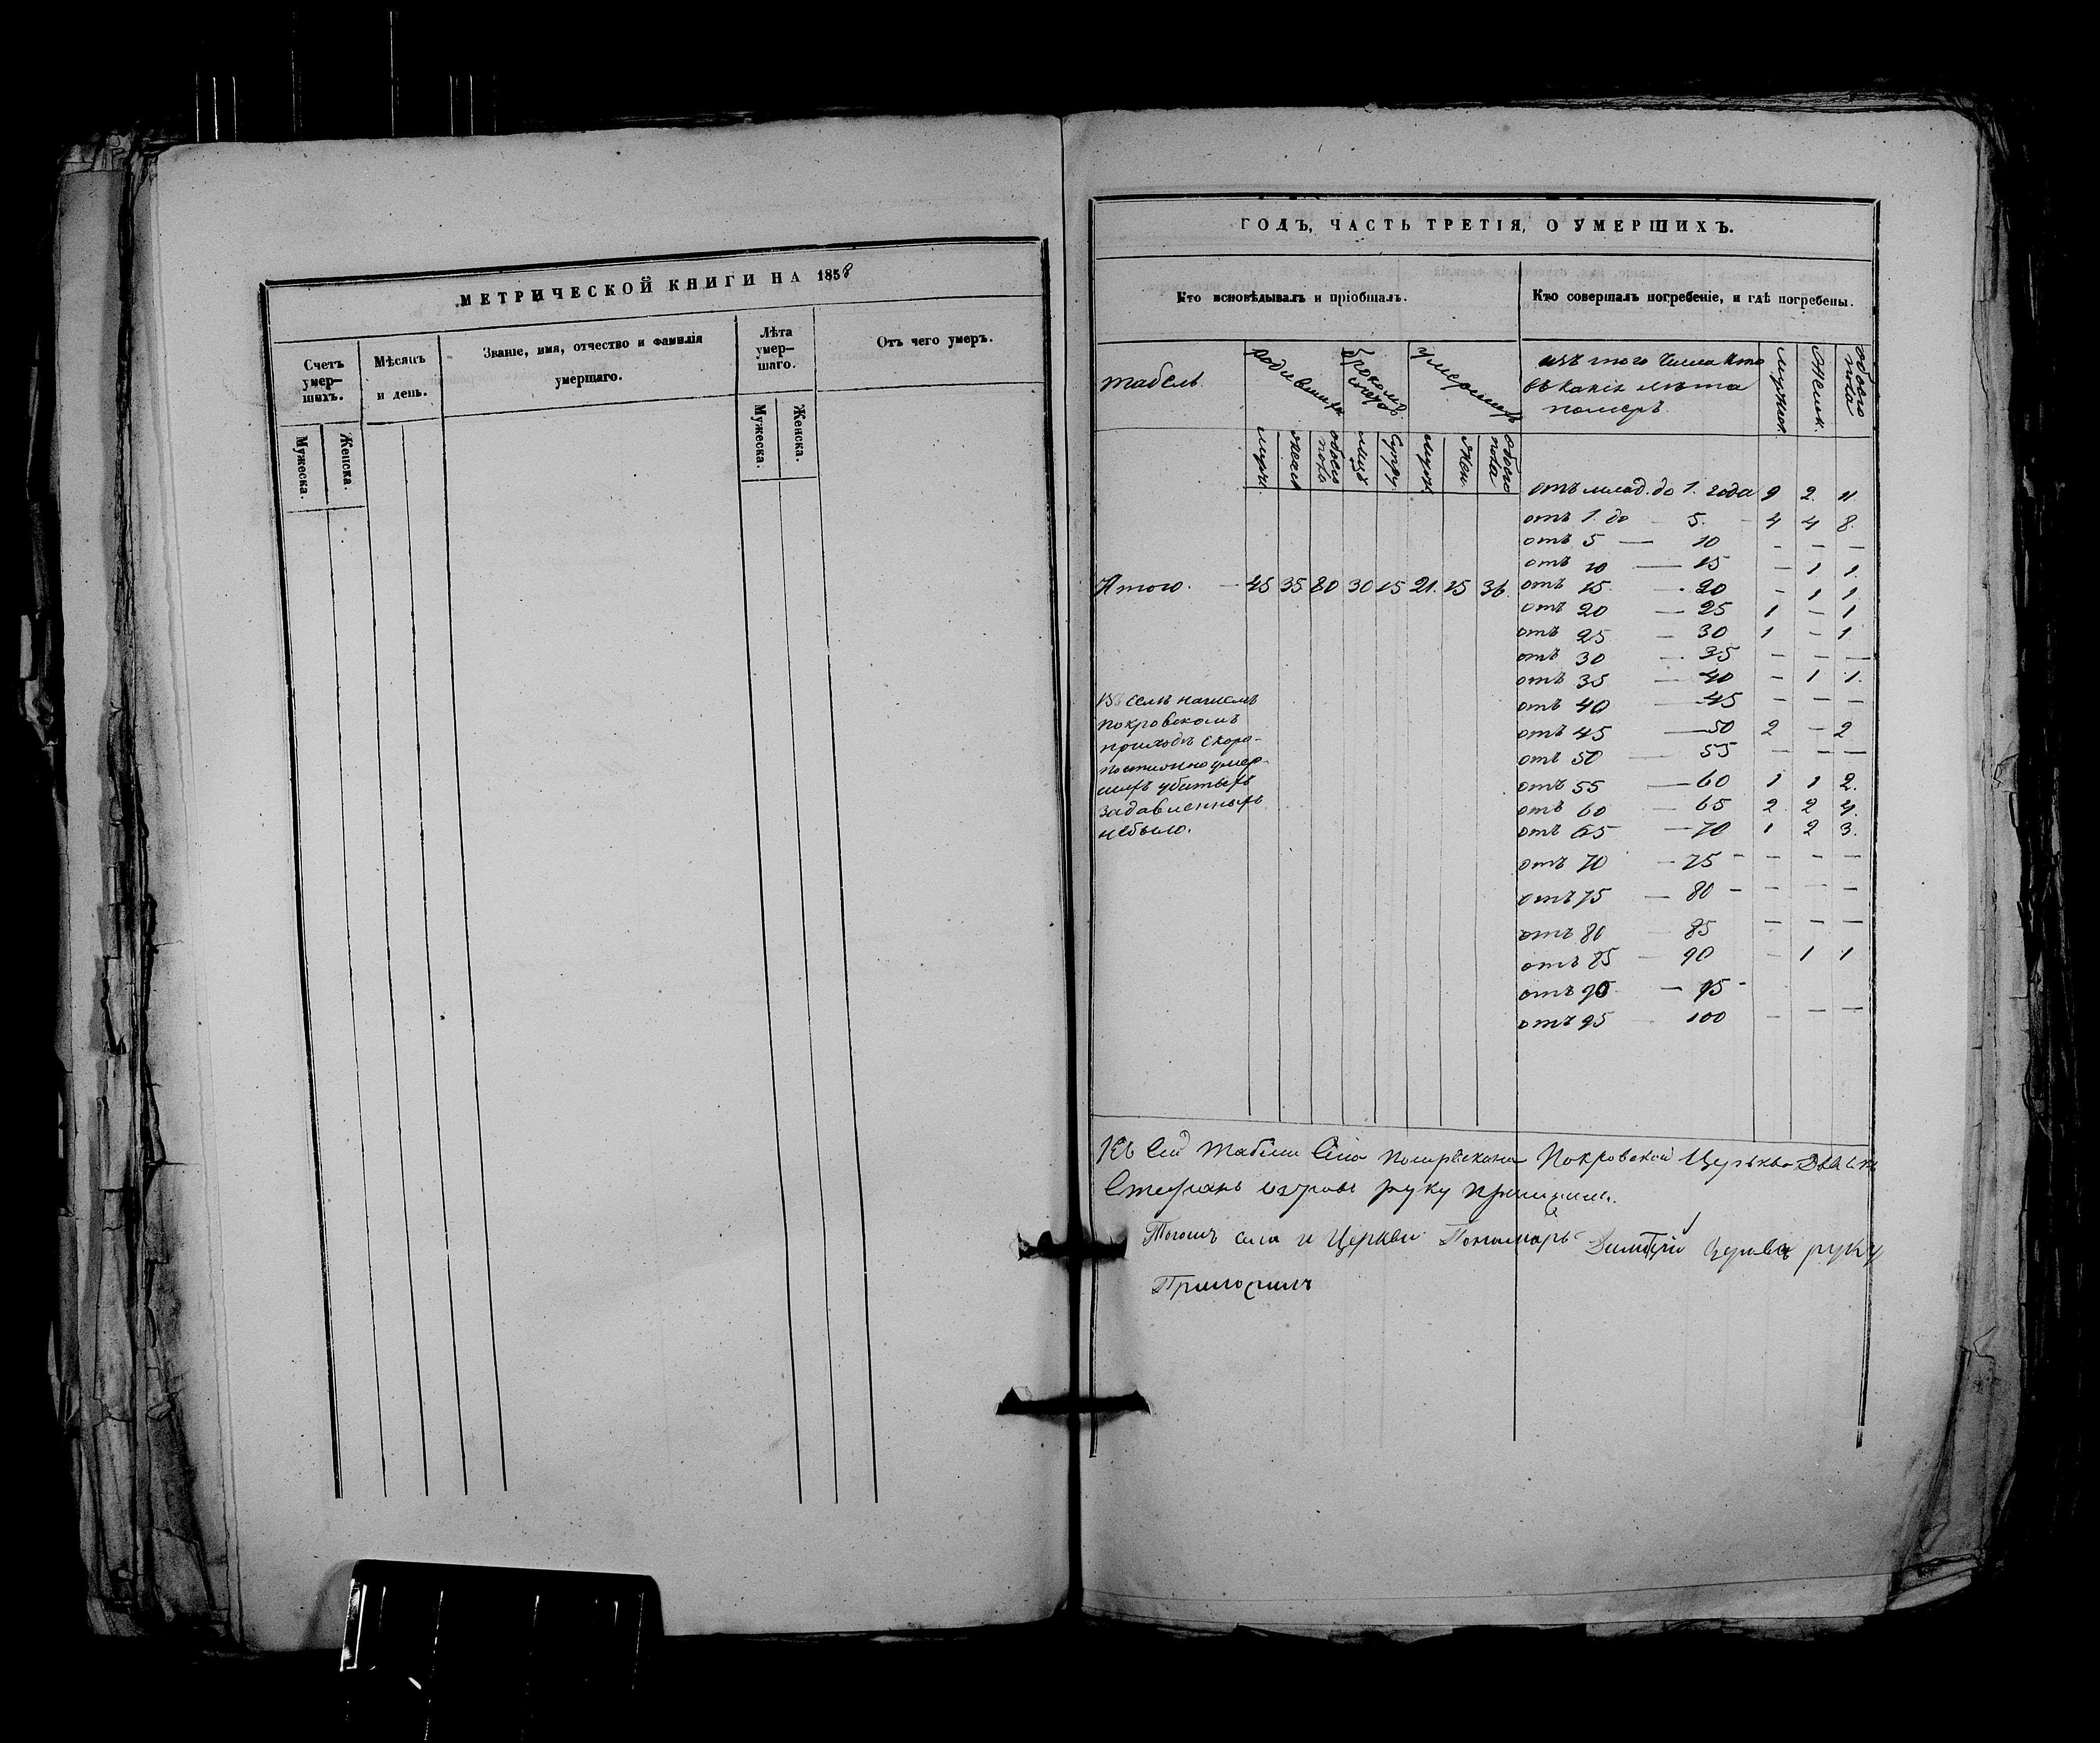 МЕТРИЧЕСКОЙ КНИГИ НА 1858
Счетъ умер-шихъ.
Мѣсяцъ и день.
Званіе, имя, отчество и фамилія умершаго.
Лѣта умер-шаго.
Отъ чего умеръ.
Мужеска.
Женска.
Мужеска.
Женска.
ГОДЪ, ЧАСТЬ ТРЕТІЯ, О УМЕРШИХЪ.
Кто исповѣдывалъ и пріобщалъ.
Кто совершалъ погребеніе, и гдѣ погребены.
табель
родившихъ
умершихъ
изъ того числа кто
въ какія лѣта
померъ
мужеск.
женск.
обоего пола
муж.
жен.
обоего пола
лицъ
супру.
муж.
жен.
обоего пола
отъ млад. до 1. года 9 2. 11.
отъ 1. до 5. — 4 4 8.
отъ 5 — 10 — — —
отъ 10 — 15 — 1 1.
Итого. — 45 35 80 30 15 21. 15 36.
отъ 15 — 20 — 1 1.
отъ 20 — 25 1 — 1
отъ 25 — 30 1 — 1
отъ 30 — 35 — — —
отъ 35 — 40 — 1 1.
отъ 40 — 45 — — —
отъ 45 — 50 2 — 2
отъ 50 — 55 — — —
отъ 55 — 60 1 1 2.
отъ 60 — 65 2 2 4.
отъ 65 — 70 1 2 3.
отъ 70 — 75 — — — —
отъ 75 — 80 — — — —
отъ 80 — 85 — — —
отъ 85 — 90 — 1 1
отъ 90 — 95 —
отъ 95 — 100 — — —
Въ семъ нашемъ
покровскомъ
приходѣ скоро-
постижно умер-
шихъ убитыхъ
задавленныхъ
небыло.
Къ сей табели села Покровской Церькви
Стефанъ руку приложилъ.
Тогожъ села и Церкви Пономарь Димитрій руку
Приложилъ